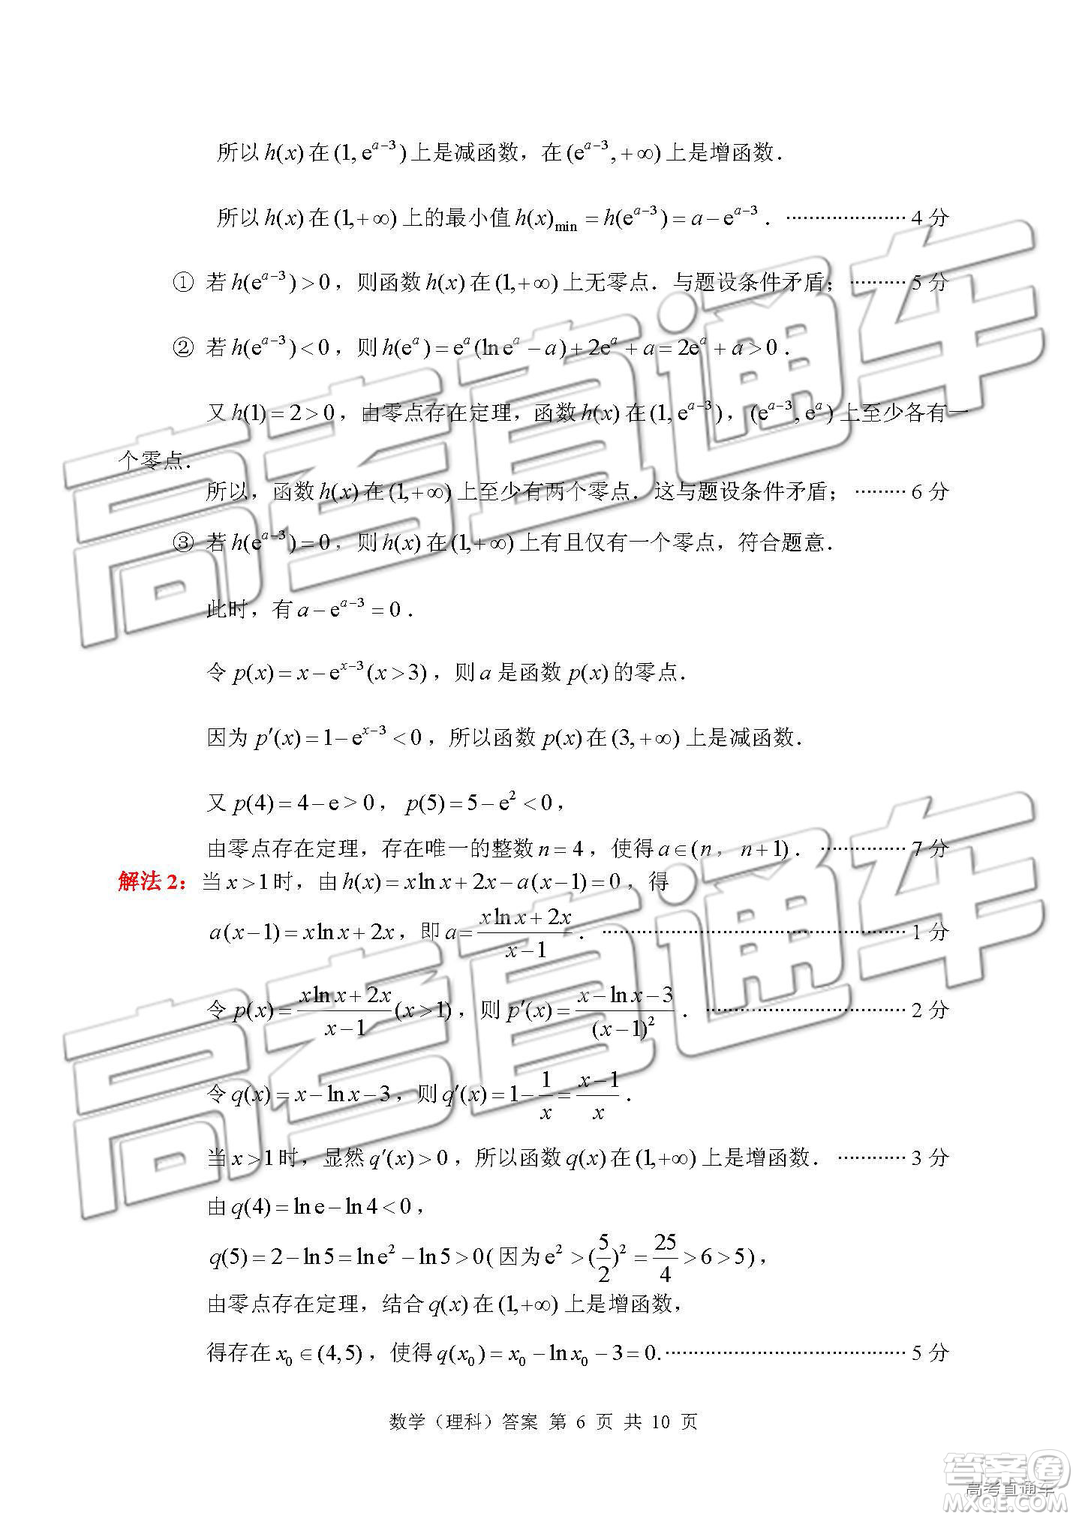 所以 h(x) 在 (1, e^{a-3}) 上是减函数，在 (e^{a-3}, +∞) 上是增函数．
所以 h(x) 在 (1, +∞) 上的最小值 h(x)_{min} = h(e^{a-3}) = a - e^{a-3}． ····················· 4 分
① 若 h(e^{a-3}) > 0，则函数 h(x) 在 (1, +∞) 上无零点．与题设条件矛盾； ·········· 5 分
② 若 h(e^{a-3}) < 0，则 h(e^a) = e^a(ln e^a - a) + 2e^a + a = 2e^a + a > 0．
又 h(1) = 2 > 0，由零点存在定理，函数 h(x) 在 (1, e^{a-3})，(e^{a-3}, e^a) 上至少各有一
个零点．
所以，函数 h(x) 在 (1, +∞) 上至少有两个零点．这与题设条件矛盾； ········· 6 分
③ 若 h(e^{a-3}) = 0，则 h(x) 在 (1, +∞) 上有且仅有一个零点，符合题意．
此时，有 a - e^{a-3} = 0．
令 p(x) = x - e^{x-3} (x > 3)，则 a 是函数 p(x) 的零点．
因为 p′(x) = 1 - e^{x-3} < 0，所以函数 p(x) 在 (3, +∞) 上是减函数．
又 p(4) = 4 - e > 0， p(5) = 5 - e^2 < 0，
由零点存在定理，存在唯一的整数 n = 4，使得 a ∈ (n， n+1)． ··············· 7 分
解法 2：当 x > 1 时，由 h(x) = x ln x + 2x - a(x-1) = 0，得
a(x-1) = x ln x + 2x，即 a = \frac{x ln x + 2x}{x-1}． ····················· 1 分
令 p(x) = \frac{x ln x + 2x}{x-1} (x > 1)，则 p′(x) = \frac{x - ln x - 3}{(x-1)^2}． ····················· 2 分
令 q(x) = x - ln x - 3，则 q′(x) = 1 - \frac{1}{x} = \frac{x-1}{x}．
当 x > 1 时，显然 q′(x) > 0，所以函数 q(x) 在 (1, +∞) 上是增函数． ············ 3 分
由 q(4) = ln e - ln 4 < 0，
q(5) = 2 - ln 5 = ln e^2 - ln 5 > 0 (因为 e^2 > (\frac{5}{2})^2 = \frac{25}{4} > 6 > 5)，
由零点存在定理，结合 q(x) 在 (1, +∞) 上是增函数，
得存在 x_0 ∈ (4, 5)，使得 q(x_0) = x_0 - ln x_0 - 3 = 0. ····················· 5 分
数学（理科）答案 第 6 页 共 10 页
高考直通车
高考直通车
答案圈
高考直通车
MXQE.COM